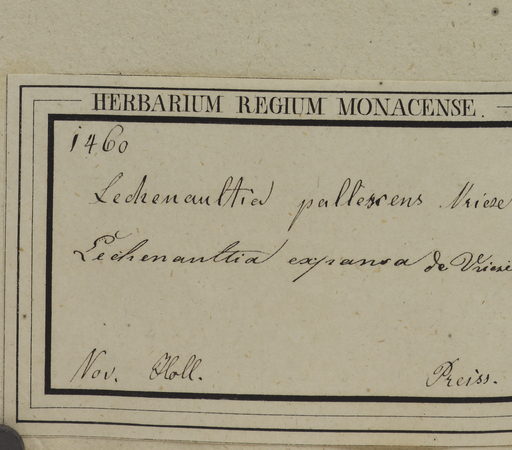 HERBARIUM REGIUM MONACENSE.
1460
Lechenaultia pallescens Vriese
Lechenaultia expansa de Vriese
Nov. Holl. Preiss.